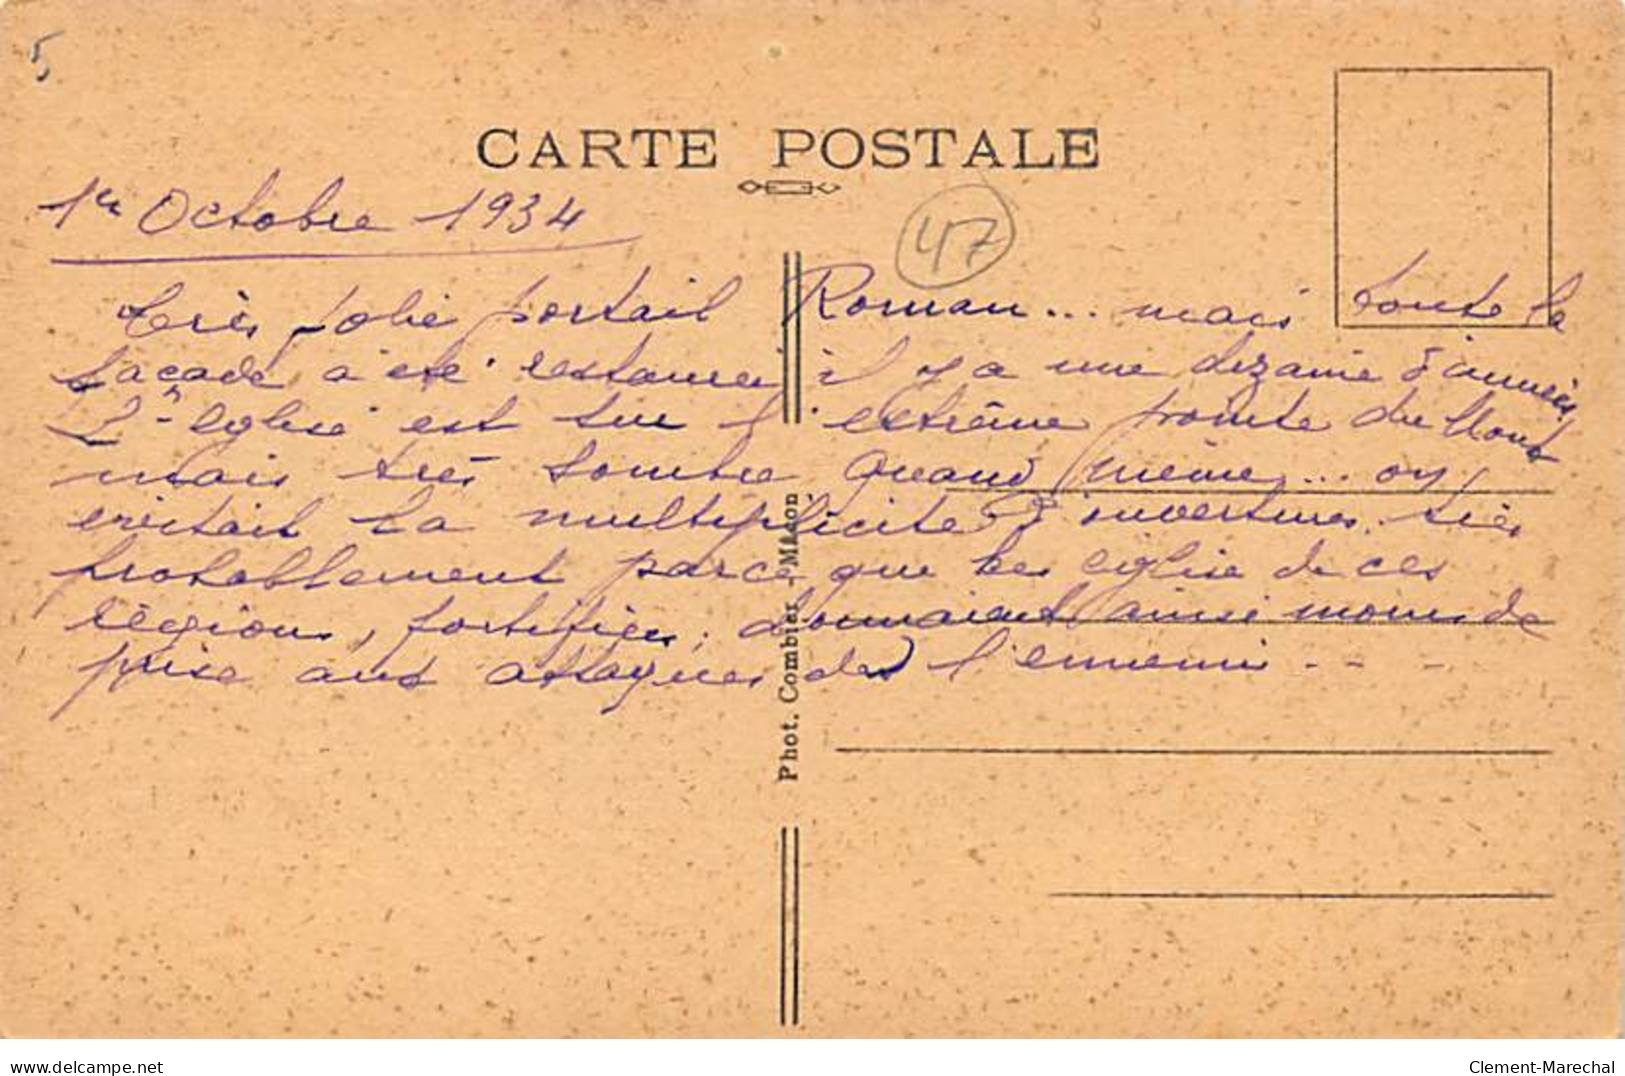 5
CARTE POSTALE
1er Octobre 1934
47
très jolie portail Roman... mais toute la
façade a été restaurée il y a une dizaine d'années
L' église est sur l'extrême pointe du Mont
mais très sombre quand même... on
évitait la multiplicité d'ouvertures très
probablement parce que les église de ces
régions, fortifiées, donnaient ainsi moins de
prise aux attaques de l'ennemi - - -
Phot. Combier - Mâcon
delcampe.net
Clement-Marechal